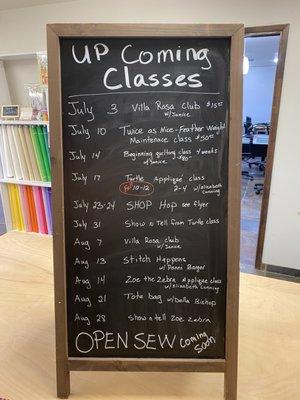 UP Coming
Classes
July 3 Villa Rosa Club $15
w/Janice
July 10 Twice as Nice-Feather Weight
Maintenace class $50.00
July 14 Beginning quilting class 4 weeks
w/Janice $80
July 17 Turtle Appliqué class
10-12 2-4 w/Elizabeth
Canning
July 23-24 SHOP Hop see flyer
July 31 Show n Tell from Turtle class
Aug 7 Villa Rosa Club
w/Janice
Aug 13 Stitch Happens
w/ Danni Barger
Aug 14 Zoe the Zebra Applique class
w/Elizabeth Canning
Aug 21 Tote bag w/Dalla Bishop
Aug 28 Show n tell Zoe Zebra
OPEN SEW Coming
Soon